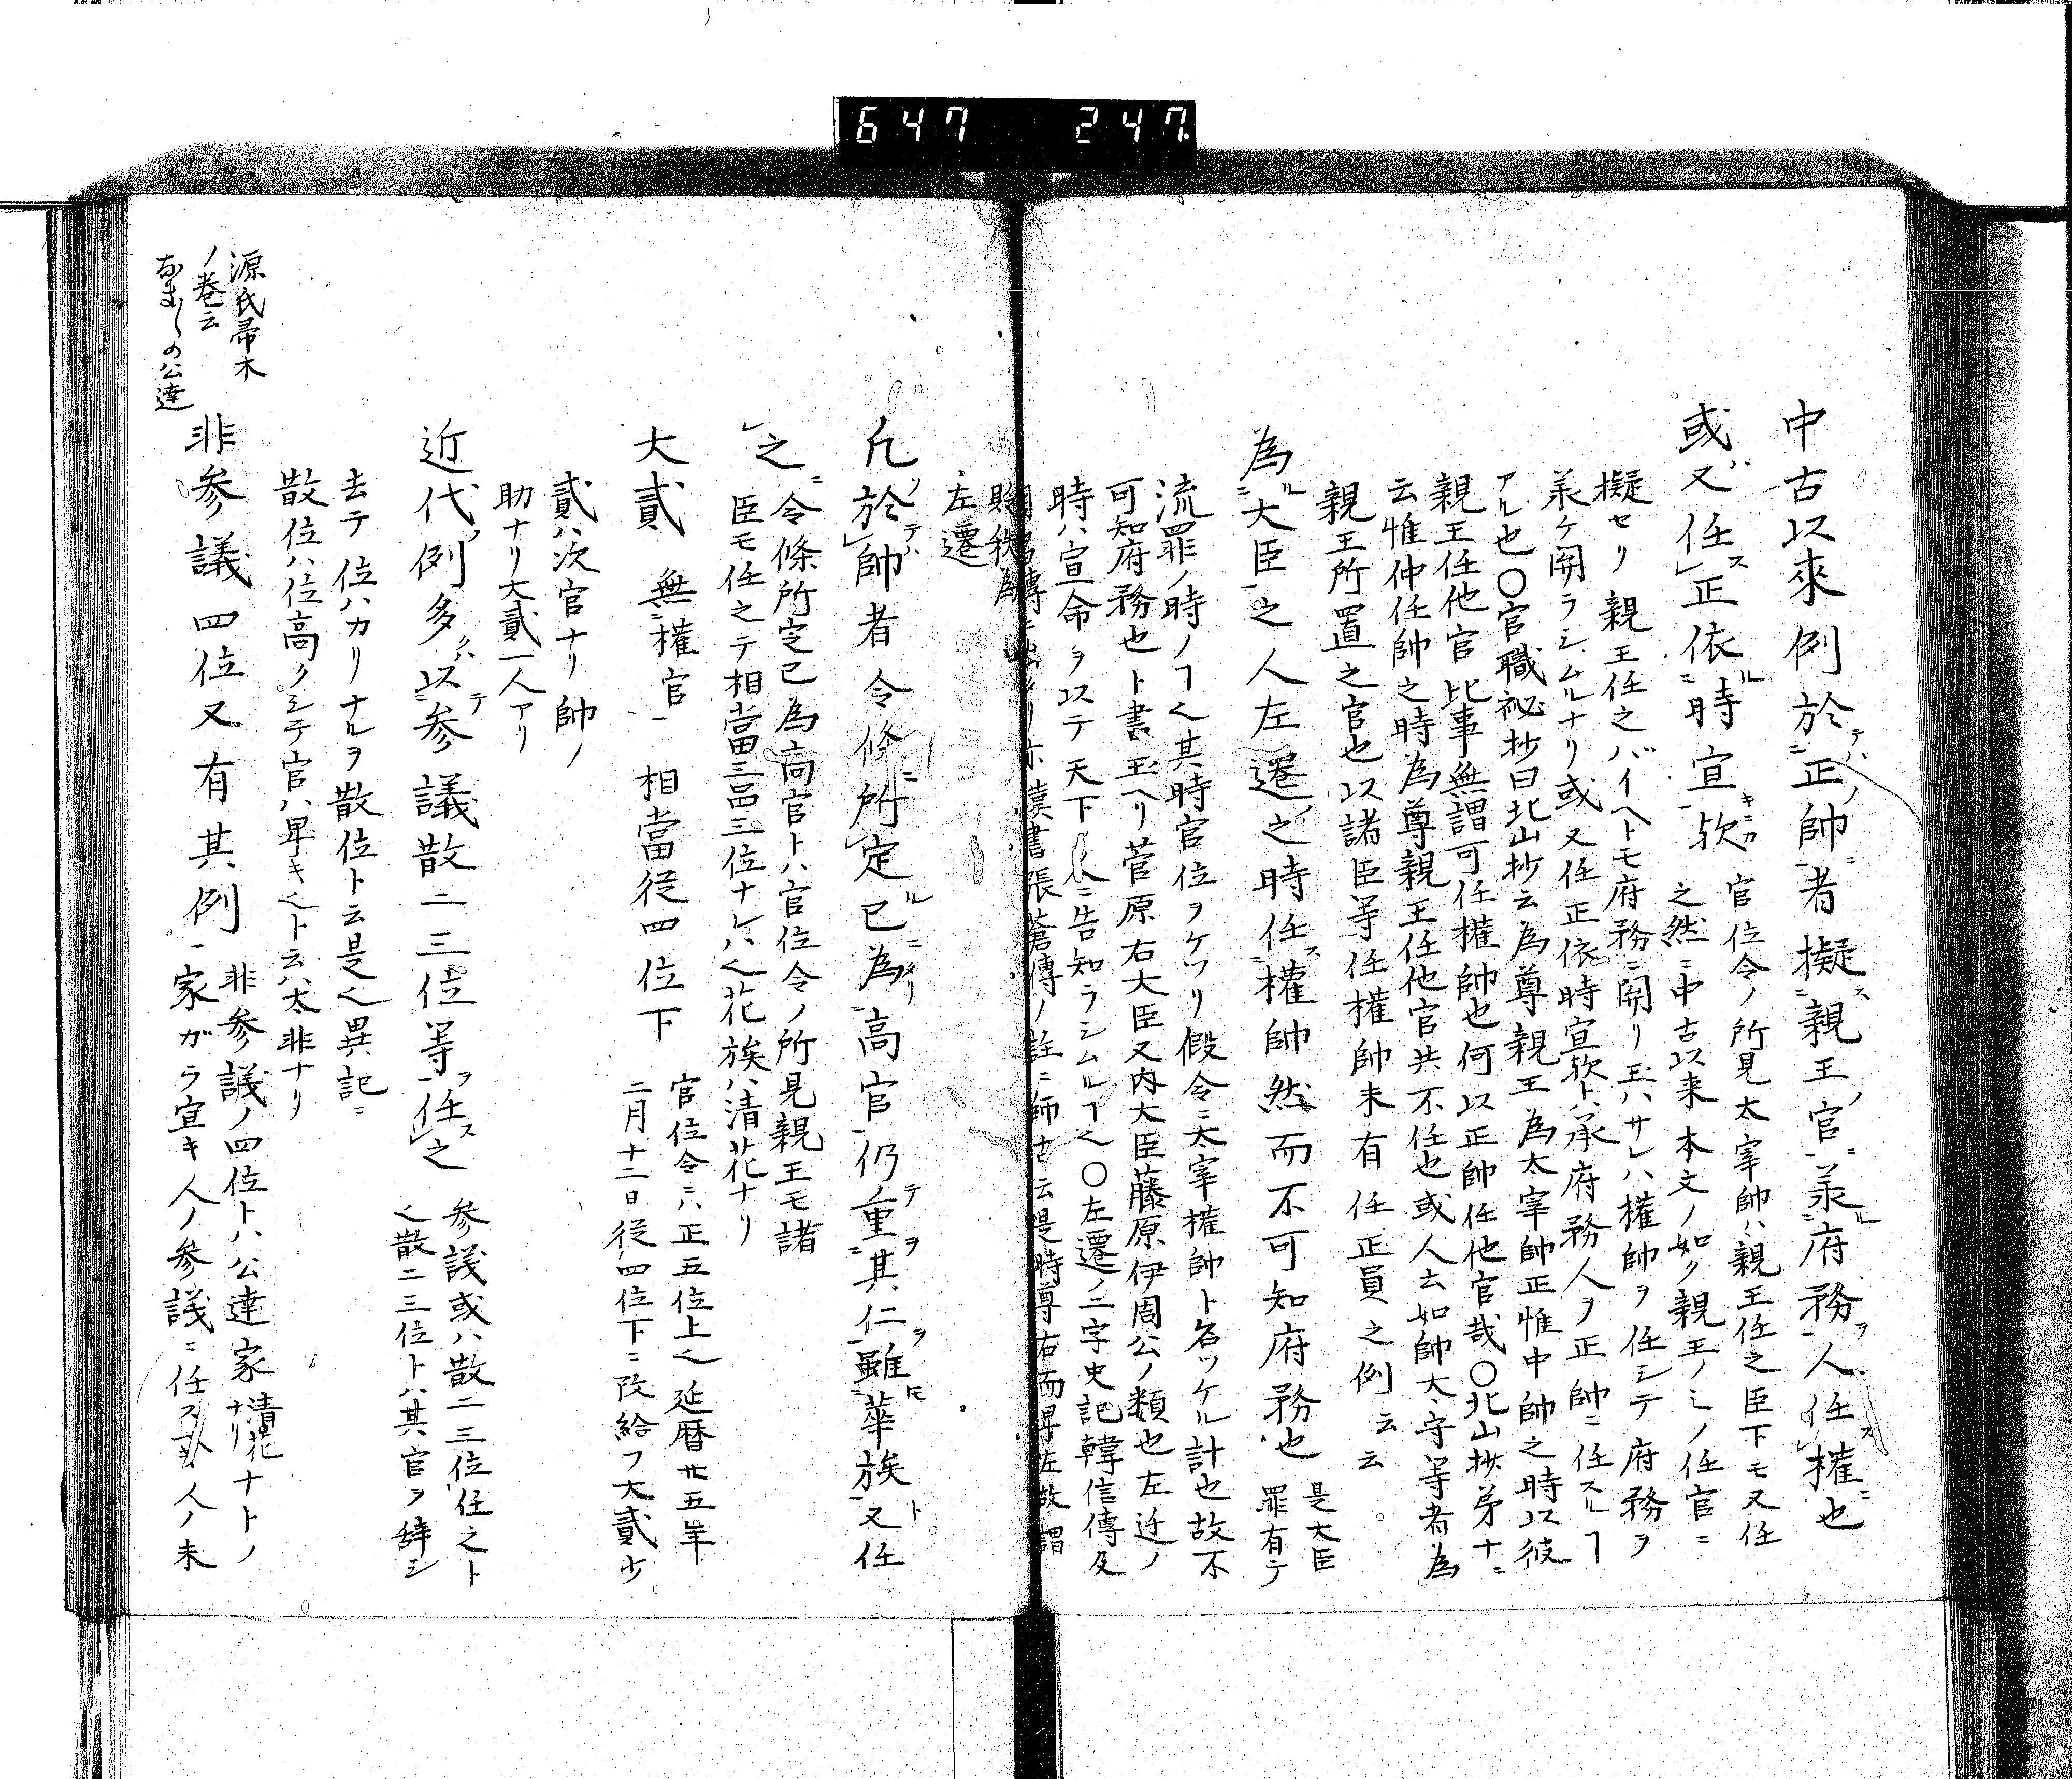 647 247
中古以來例於正帥者擬親王官兼府務人任權也
或又任正依時宜欤 官位令ノ所見太宰帥ハ親王任之臣下モ又任
之然ニ中古以来本文ノ如ク親王ノミノ任官ニ
擬セリ親王任之バイヘトモ府務ニ開リ玉ハサレハ權帥ヲ任シテ府務ヲ
兼ケ開ラシムルナリ或又任正依時宣欤ト承府務人ヲ正帥ニ任スルヿ
アル也〇官職祕抄曰北山抄云為尊親王為太宰帥正惟中帥之時以彼
親王任他官比事無謂可任權帥也何以正帥任他官哉〇北山抄苐十ニ
云惟仲任帥之時為尊親王任他官共不任也或人云如帥大守等者為
親王所置之官也以諸臣等任權帥未有任正員之例云云
為大臣之人左遷之時任權帥然而不可知府務也 是大臣
罪有テ
流罪ノ時ノヿ也其時官位ヲケツリ假令ニ太宰權帥ト名ツケル計也故不
可知府務也ト書玉ヘリ菅原右大臣又内大臣藤原伊周公ノ類也左迁ノ
時ハ宣命ヲ以テ天下ノ人ニ告知ラシムルヿ也〇左遷ノ二字史記韓信傳及
漢書張蒼傳ノ註ニ師古云是時尊右而卑左故謂
貶秩為
左遷
凡於帥者令條所定已為高官仍重其仁雖華族又任
之 令條所定已為高官トハ官位令ノ所見親王モ諸
臣モ任之テ相當三品三位ナレハ也花族ハ清花ナリ
大貳 無權官 相當従四位下 官位令ニハ正五位上也延暦廿五年
二月十二日従四位下ニ改給フ大貳少
貳ハ次官ナリ帥ノ
助ナリ大貳一人アリ
近代例多以参議散二三位等任之 参議或ハ散二三位任之ト
也散二三位トハ其官ヲ辞シ
去テ位ハカリナルヲ散位ト云是也異記ニ
散位ハ位高クシテ官ハ卑キ也ト云ハ太非ナリ
源氏帚木
ノ巻云
なま〱の公達
非参議四位又有其例 非参議ノ四位トハ公達家清花ナリナトノ
家ガラ宣キ人ノ参議ニ任スヘキ人ノ未